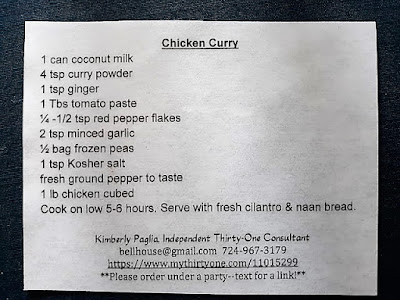 Chicken Curry
1 can coconut milk
4 tsp curry powder
1 tsp ginger
1 Tbs tomato paste
¼ -1/2 tsp red pepper flakes
2 tsp minced garlic
½ bag frozen peas
1 tsp Kosher salt
fresh ground pepper to taste
1 lb chicken cubed
Cook on low 5-6 hours. Serve with fresh cilantro & naan bread.
Kimberly Paglia, Independent Thirty-One Consultant
bellhouse@gmail.com 724-967-3179
https://www.mythirtyone.com/11015299
**Please order under a party--text for a link!**